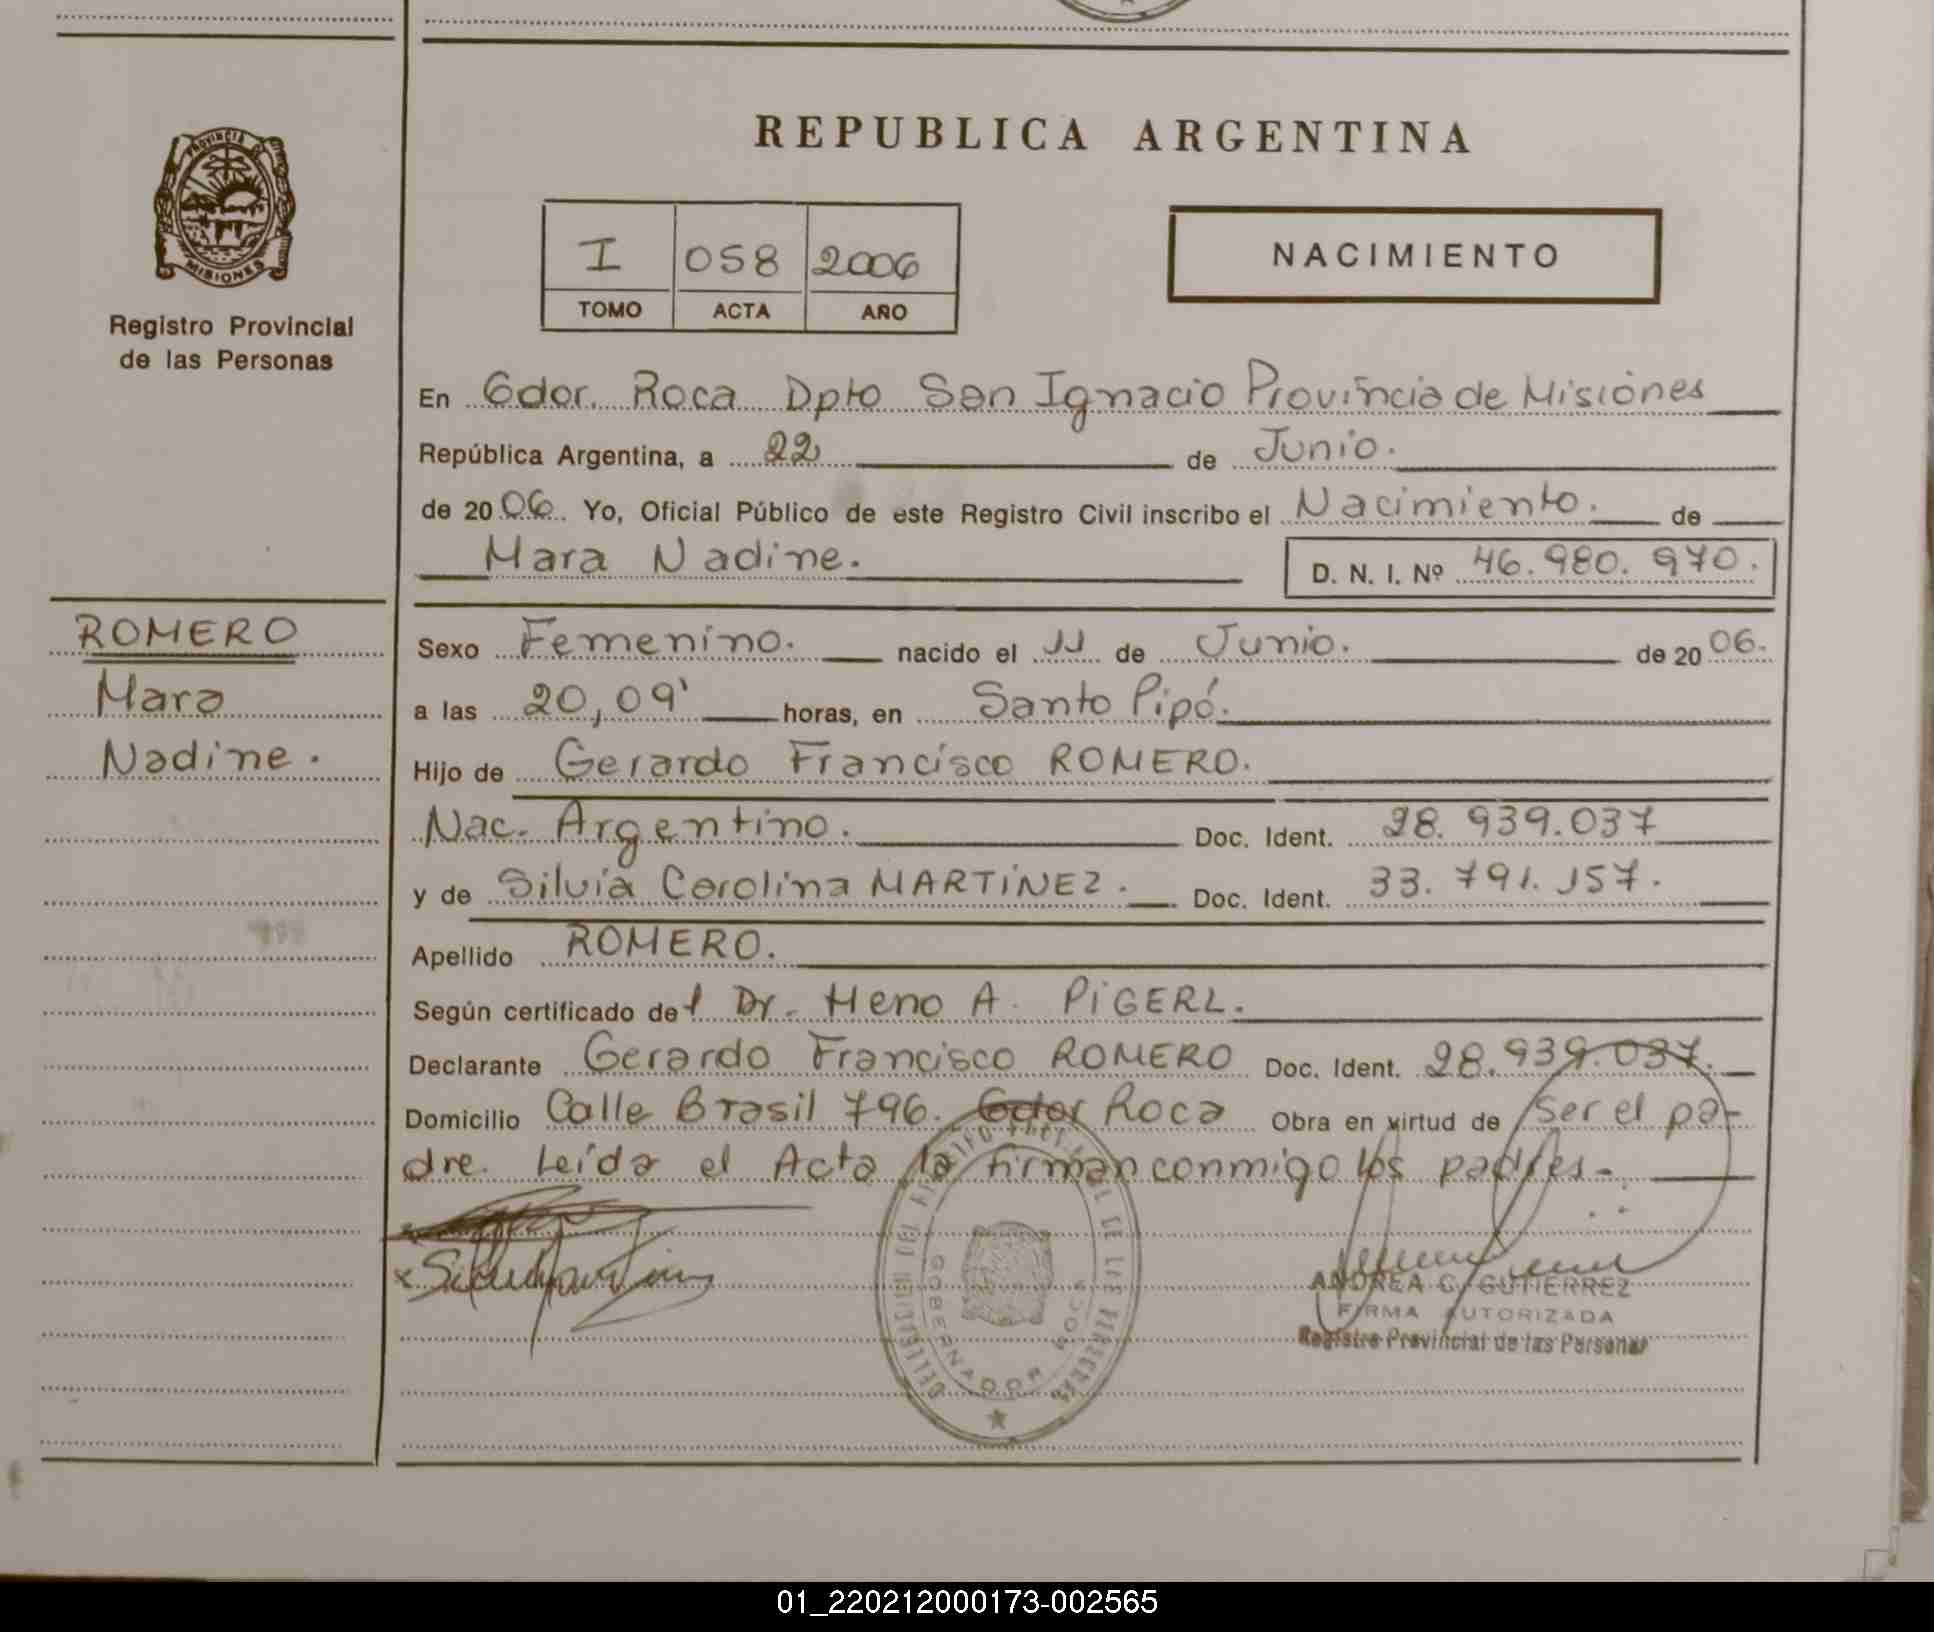 REPUBLICA ARGENTINA
PROVINCIA DE
MISIONES
Registro Provincial
de las Personas
I 058 2006
TOMO ACTA AÑO
NACIMIENTO
En Gdor. Roca Dpto San Ignacio Provincia de Misiones
República Argentina, a 22 de Junio.
de 2006. Yo, Oficial Público de este Registro Civil inscribo el Nacimiento. de
Mara Nadine. D. N. I. Nº 46.980.970.
ROMERO
Mara
Nadine.
Sexo Femenino. nacido el 11 de Junio. de 2006.
a las 20,09' horas, en Santo Pipó.
Hijo de Gerardo Francisco ROMERO.
Nac. Argentino. Doc. Ident. 28.939.037
y de Silvia Carolina MARTINEZ. Doc. Ident. 33.791.157.
Apellido ROMERO.
Según certificado del Dr. Heno A. PIGERL.
Declarante Gerardo Francisco ROMERO Doc. Ident. 28.939.037.
Domicilio Calle Brasil 796. Gdor Roca Obra en virtud de ser el pa-
dre. Leída el Acta la firman conmigo los padres.-
GOBERNADOR ROCA
ANDREA C. GUTIERREZ
FIRMA AUTORIZADA
Registro Provincial de las Personas
01_220212000173-002565